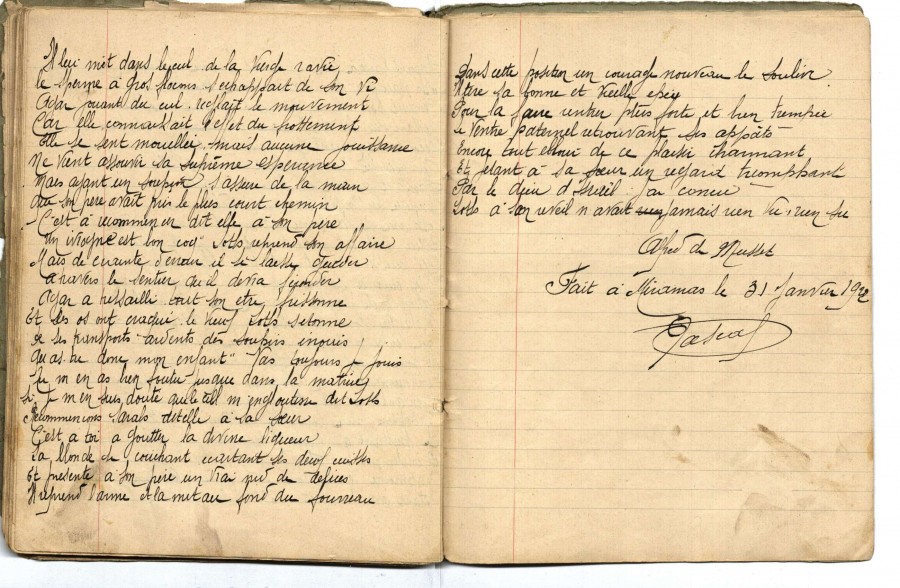 Il lui met dans le cul de la vierge ravie
le sperme à gros flocons s'échappait de son vi
Agar jouant du cul refesait le mouvement
Car elle connaissait l'effet du frottement
Elle se sent mouillée mais aucune jouissance
Ne vient assouvir sa suprême esperance
Mais ayant un soupçon s'assura de la main
Que son père avait pris le plus court chemin
C'est à recommencer dit elle à son père
un ivrogne est bon coq Loth reprend son affaire
Mais de crainte d'erreur il se laisse guider
à travers le sentier qu'il devra
Agar a tressailli tout son être frissonne
Et ses os ont craqué le vieux Loth s'étonne
de ses transports ardents des soupirs inouis
Qu'as-tu donc mon enfant" Vas toujours je jouis
Tu m'en as bien foutu jusque dans la matrice
si je m'en suis doute qu'elle m'engloutisse dit Loth
Recommencons Sarah dit elle à sa sœur
C'est a toi a goutter la divine liqueur
La blonde se couchant écartant ses deux cuisses
Et présente à son père un vrai nid de delices
Il reprend l'arme et la met au fond du fourreau
Dans cette position un courage nouveau le soulève
Il tire sa bonne et vieille epée
Pour la faire rentrer plus forte et bien trempée
le ventre paternel retrouvant ses appats
Encore tout emu de ce plaisir charmant
Et jetant à sa sœur un regard triomphant
Par le dieu d'Israil j'ai concu
Loth à son reveil n'avait jamais rien vu rien su
Alfred de Musset
Fait à Miramas le 31 Janvier 1922
Pascal